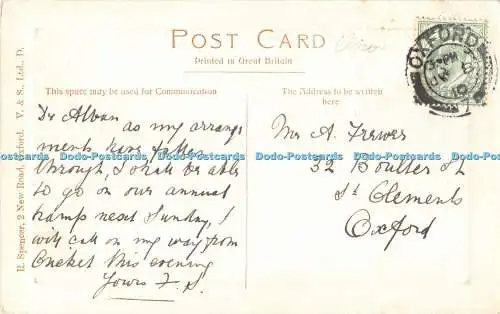 POST CARD
Printed in Great Britain
This space may be used for Communication
The Address to be written
here.
R. Spencer, 2 New Road, Oxford. V. & S., Ltd., D.
OXFORD
3-PM
10
Dr Alban
as my arrange
ments have fallen
through, I shall be able
to go on our annual
tramp next Sunday, I
will call on my way from
Cricket this evening
Yours F. S.
Mr A. Frewer
32 Boulter St
St Clements
Oxford
Dodo-Postcards Dodo-Postcards Dodo-Postcards Dodo-Postcards Dodo-Postcards Dodo-Postcards